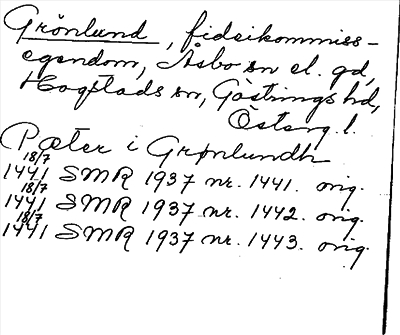 Grönlund, fideikommiss-
egendom, Åsbo sn el. gd,
Hogstads sn, Göstrings hd,
Österg. l.
Pæter i Grønlundh
18/7
1441 SMR 1937 nr. 1441. orig.
18/7
1441 SMR 1937 nr. 1442. orig.
18/7
1441 SMR 1937 nr. 1443. orig.